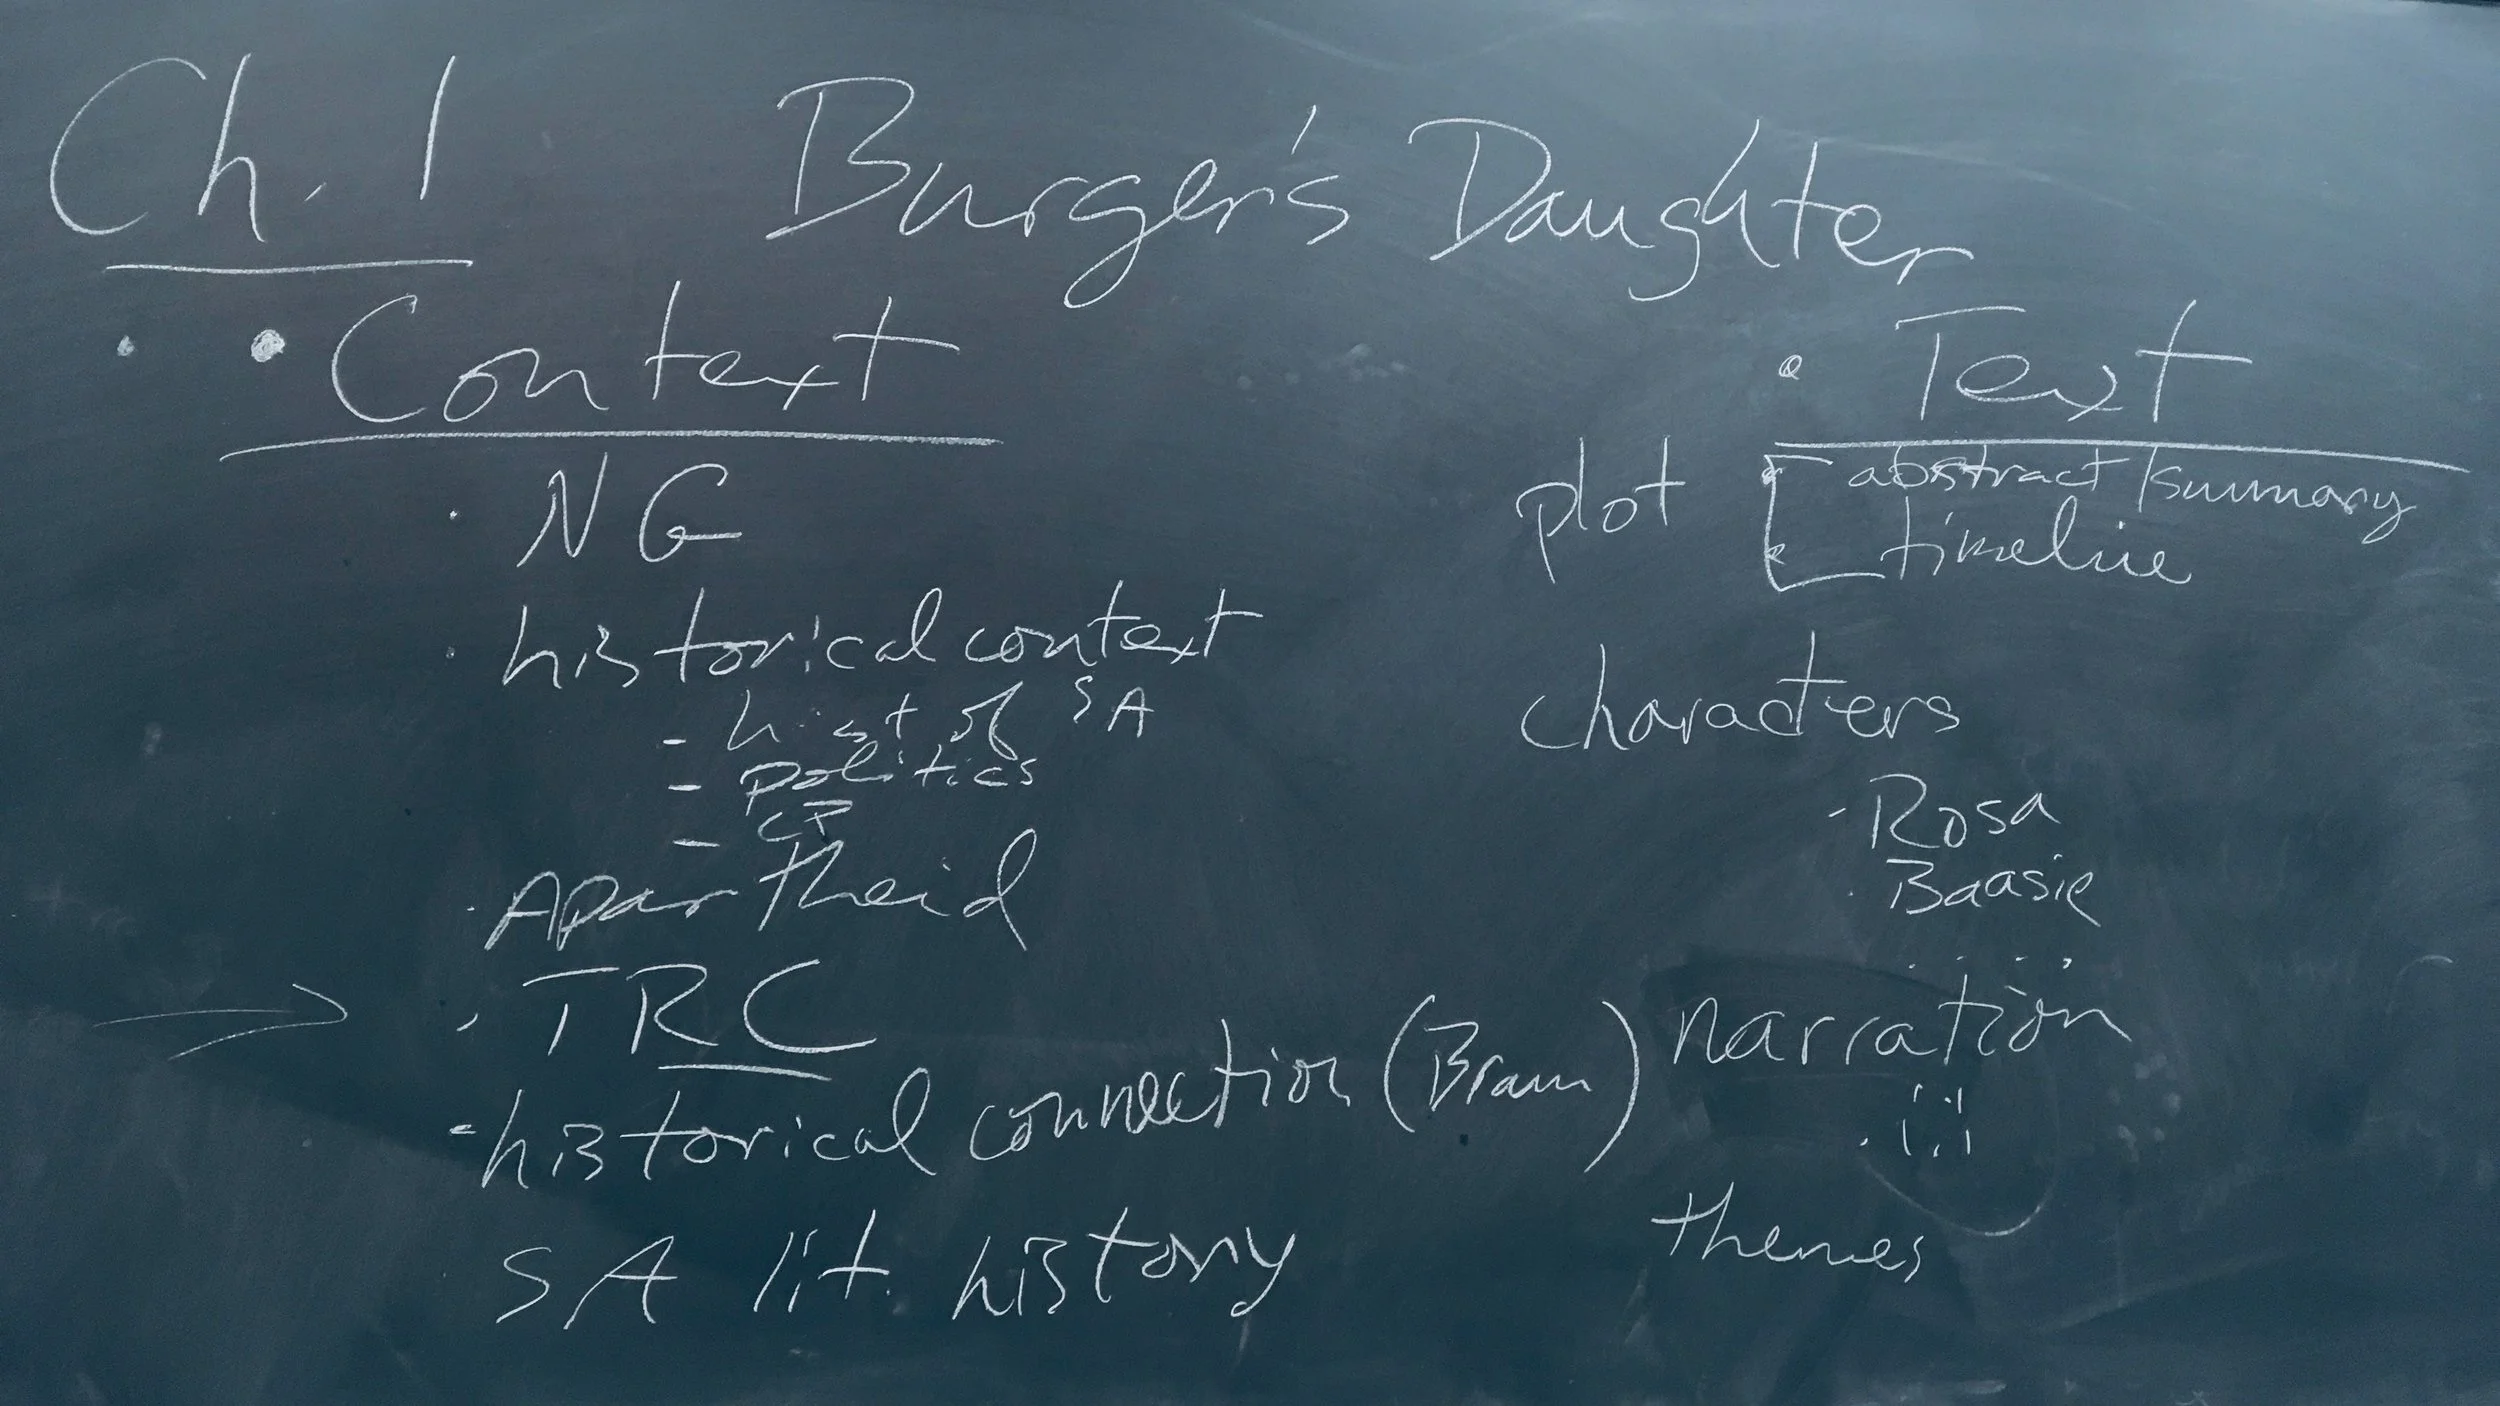 Ch. 1 Burger's Daughter
• • Context
· NG
· historical context
- hist of SA
- politics
- CP
· Apartheid
→ · TRC
- historical connection (Bram)
SA lit. history
• Text
plot [ abstract/summary
timeline
characters
- Rosa
· Baasie
. . . .
narration
themes